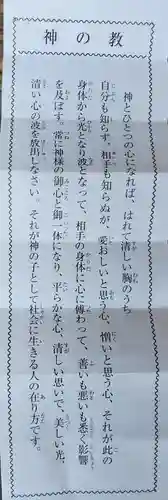 神の教
神とひとつの心になれば、はれて清しい胸のうち
自分も知らず、相手も知らぬが、愛おしいと思う心、憎いと思う心、それが此の
身体から光となり波となって、相手の身体に心に傳わって、善いも悪いも悉く影響
を及ぼす。常に神様の御心と御一体になり、平らかな心、清しい思いで、美しい光、
清い心の波を放出しなさい。それが神の子として社会に生きる人の在り方です。